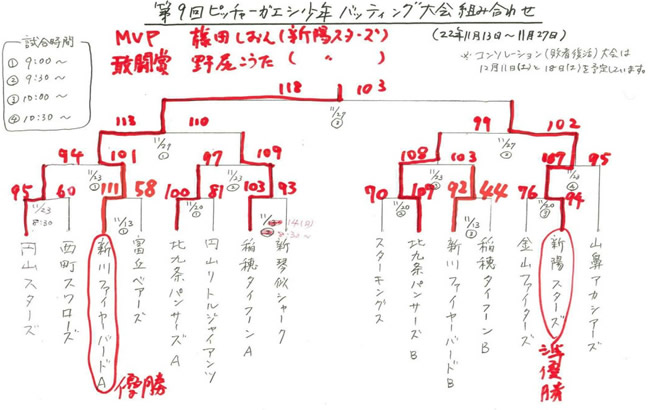 第9回ピッチャーガエシ少年バッティング大会組み合わせ
MVP 篠田しおん(新陽スターズ)
敢闘賞 野尾こうた( 〃 )
('22年11月13日〜11月27日)
※コンソレーション(敗者復活)大会は
12月11日(土)と18日(土)を予定しています。
試合時間
① 9:00〜
② 9:30〜
③ 10:00〜
④ 10:30〜
118 103
11/27
②
113 110 99 102
11/27
①
11/27
①
94 101 97 109 108 103 107 95
11/23
②
11/23
①
11/23
①
11/23
④
95 60 111 58 100 81 103 93 70 107 92 44 76 94
11/23
8:30
11/13
①
11/20
①
14(日)
8:30〜
11/20
②
11/13
②
11/20
③
円山スターズ
西町スワローズ
新川ファイヤーバードA
富丘ベアーズ
北九条パンサーズA
円山リトルジャイアンツ
稲穂タイフーンA
新琴似シャーク
スターキングス
北九条パンサーズB
新川ファイヤーバードB
稲穂タイフーンB
金山ファイターズ
新陽スターズ
山鼻アカシアーズ
優勝
準優勝